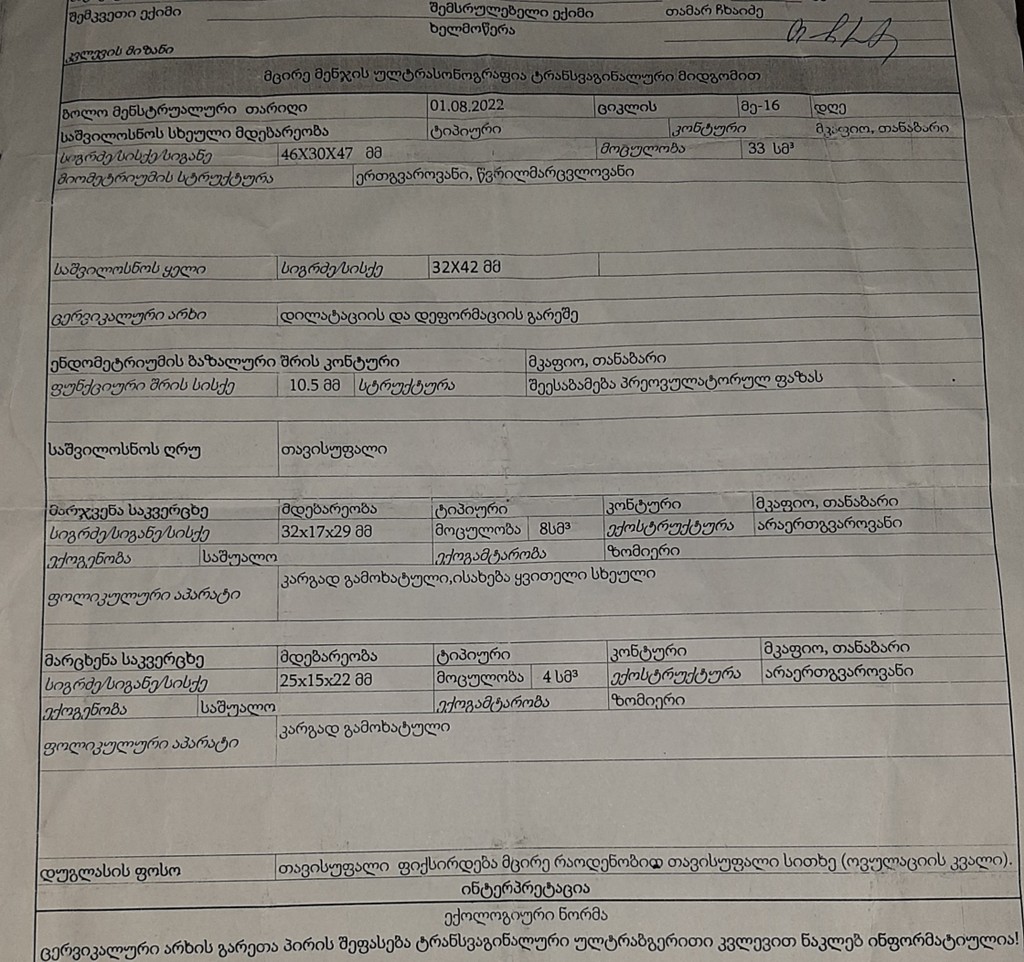 შემკვეთი ექიმი შემსრულებელი ექიმი თამარ ჩხაიძე
ხელმოწერა
კვლევის მიზანი
მცირე მენჯის ულტრასონოგრაფია ტრანსვაგინალური მიდგომით
ბოლო მენსტრუალური თარიღი 01.08.2022 ციკლის მე-16 დღე
საშვილოსნოს სხეული მდებარეობა ტიპიური კონტური მკაფიო, თანაბარი
სიგრძე/სისქე/სიგანე 46X30X47 მმ მოცულობა 33 სმ³
მიომეტრიუმის სტრუქტურა ერთგვაროვანი, წვრილმარცვლოვანი
საშვილოსნოს ყელი სიგრძე/სისქე 32X42 მმ
ცერვიკალური არხი დილატაციის და დეფორმაციის გარეშე
ენდომეტრიუმის ბაზალური შრის კონტური მკაფიო, თანაბარი
ფუნქციური შრის სისქე 10.5 მმ სტრუქტურა შეესაბამება პრეოვულატორულ ფაზას
საშვილოსნოს ღრუ თავისუფალი
მარჯვენა საკვერცხე მდებარეობა ტიპიური კონტური მკაფიო, თანაბარი
სიგრძე/სიგანე/სისქე 32x17x29 მმ მოცულობა 8სმ³ ექოსტრუქტურა არაერთგვაროვანი
ექოგენობა საშუალო ექოგამტარობა ზომიერი
ფოლიკულური აპარატი კარგად გამოხატული,ისახება ყვითელი სხეული
მარცხენა საკვერცხე მდებარეობა ტიპიური კონტური მკაფიო, თანაბარი
სიგრძე/სიგანე/სისქე 25x15x22 მმ მოცულობა 4 სმ³ ექოსტრუქტურა არაერთგვაროვანი
ექოგენობა საშუალო ექოგამტარობა ზომიერი
ფოლიკულური აპარატი კარგად გამოხატული
დუგლასის ფოსო თავისუფალი ფიქსირდება მცირე რაოდენობით თავისუფალი სითხე (ოვულაციის კვალი).
ინტერპრეტაცია
ექოლოგიური ნორმა
ცერვიკალური არხის გარეთა პირის შეფასება ტრანსვაგინალური ულტრაბგერითი კვლევით ნაკლებ ინფორმატიულია!